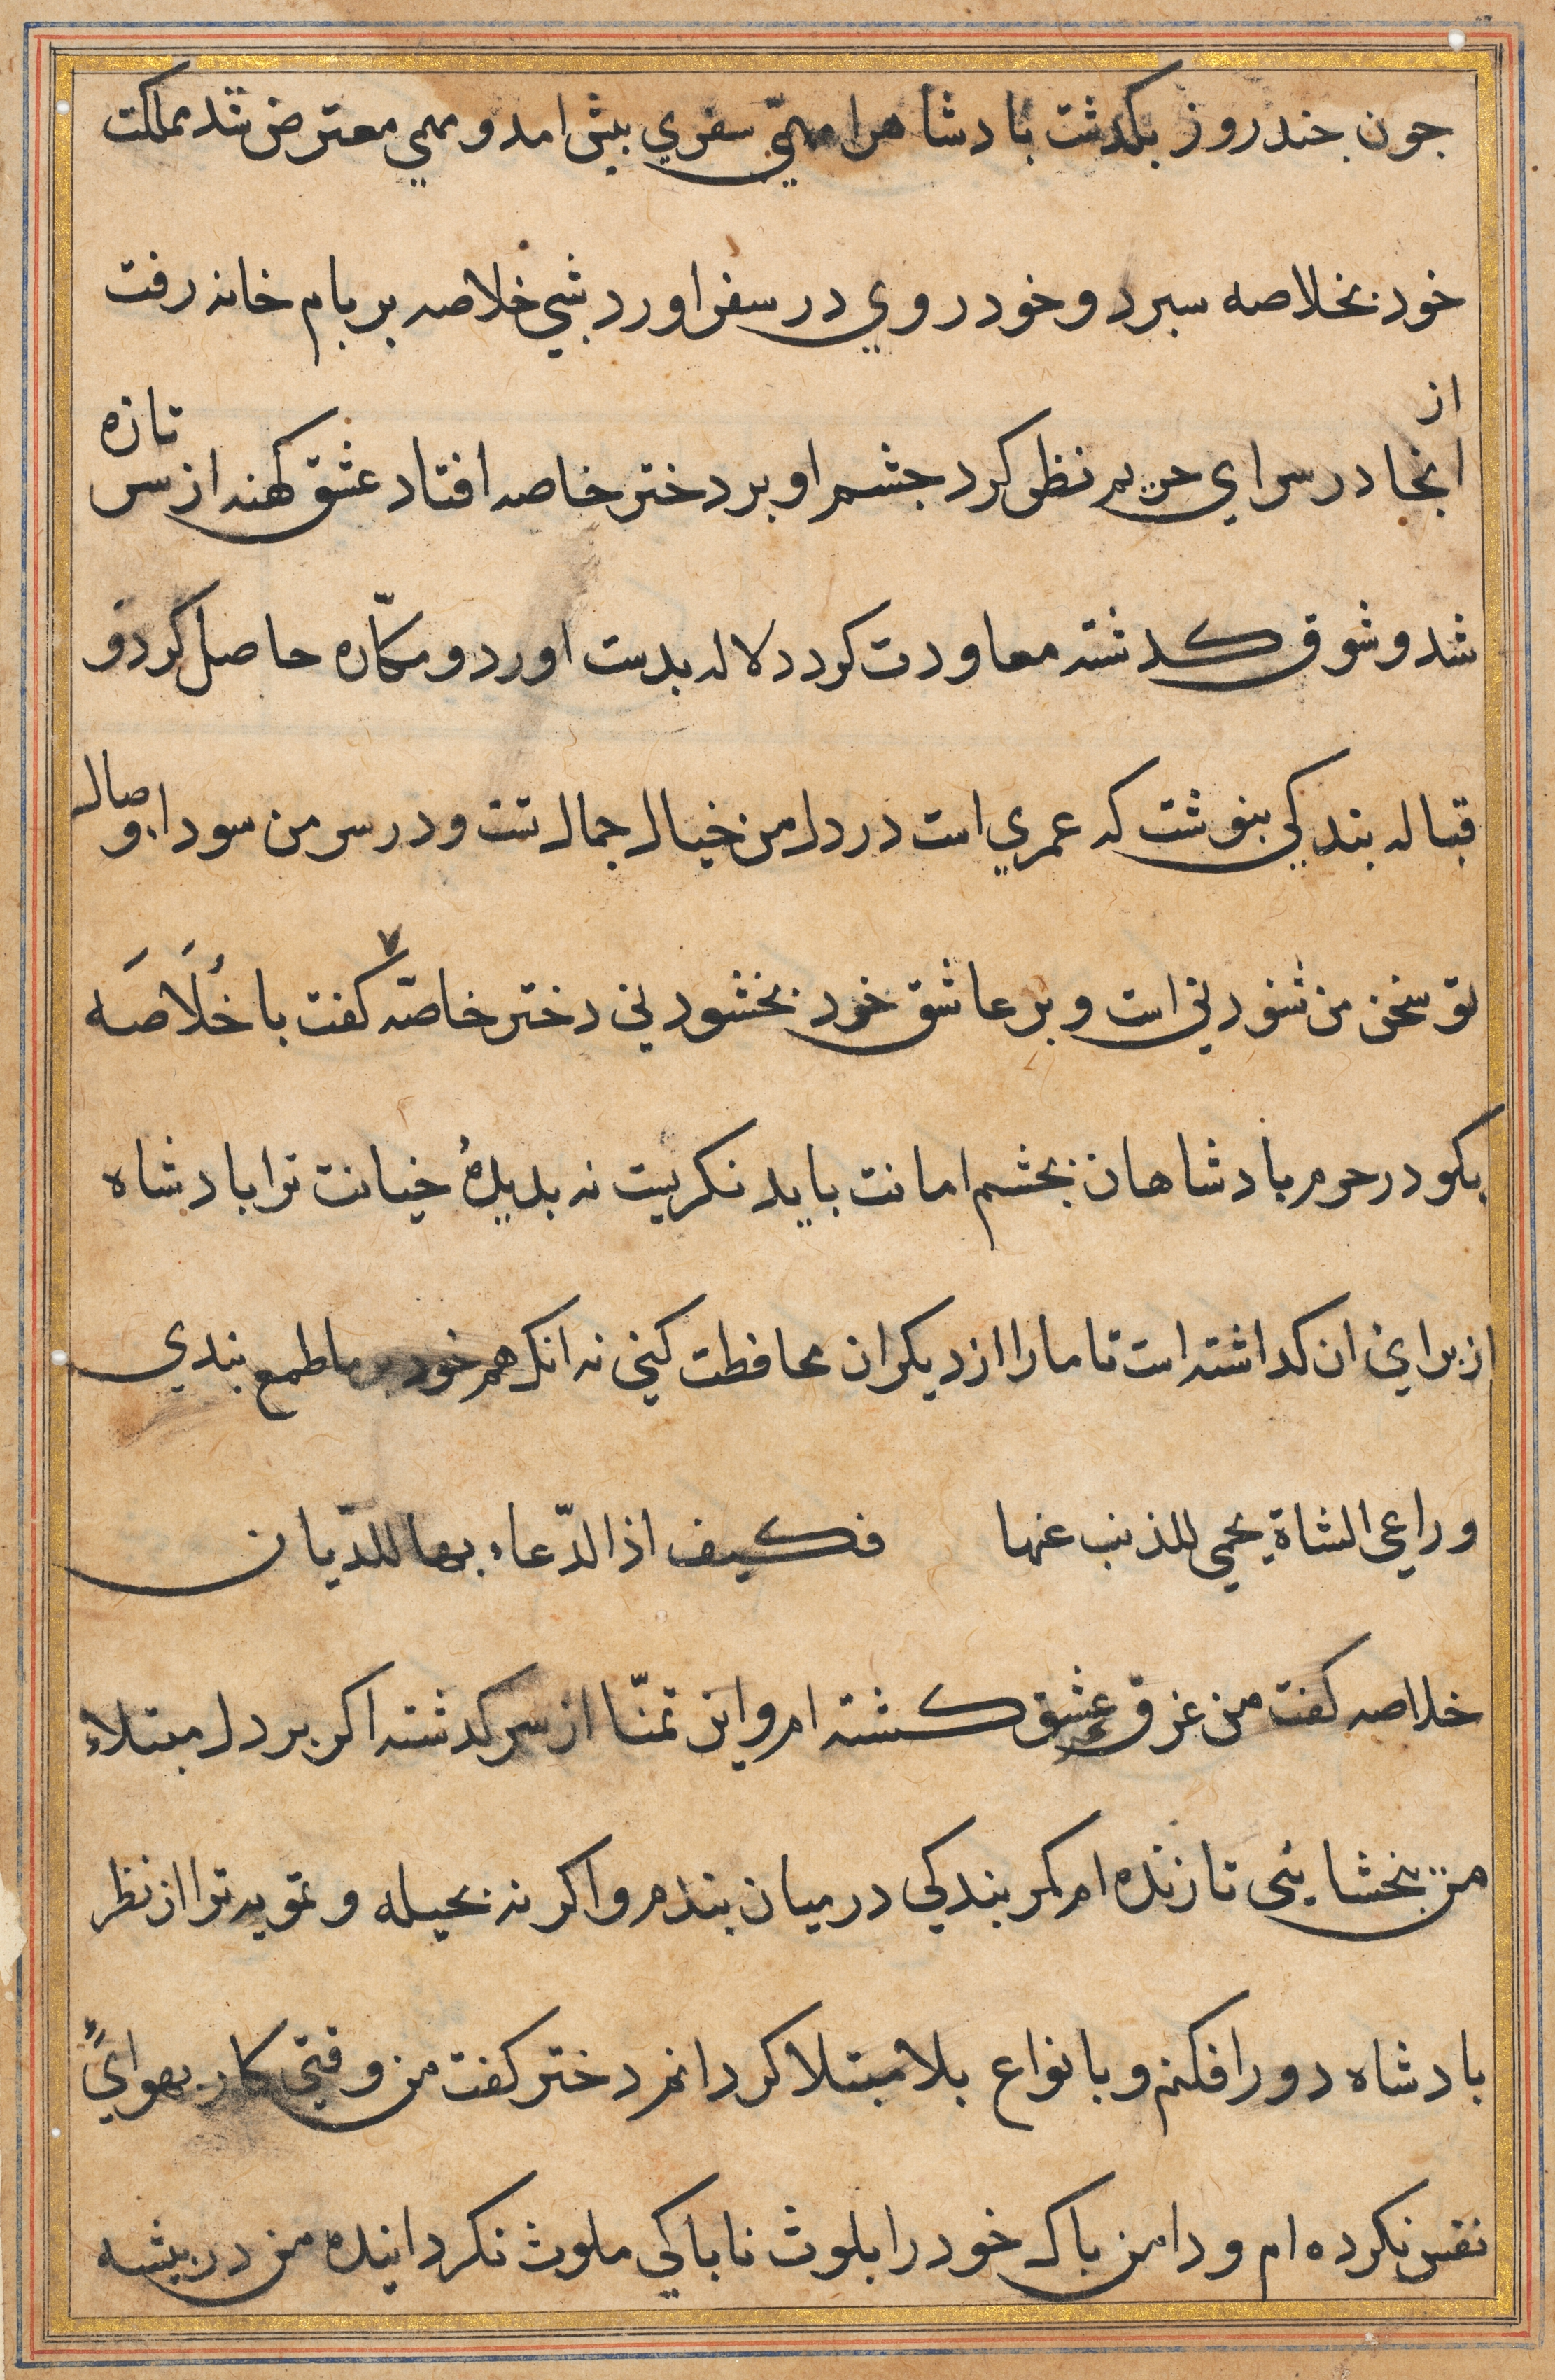 جون جند روز بكدشت بادشاهرا مهمّي سفري بيش امد و مهمي معترض شد مملكت
خود بخلاصه سبرد و خود روي در سفر اورد شبي خلاصه بر بام خانه رفت
از انجا در سراي حريم نظر كرد جشم او بر دختر خاصه افتاد عشق كهنه از سر تازه
شد و شوق كدشته معاودت كرد دلاله بدست اورد و مكّاره حاصل كرد و
قباله بندكي بنوشت كه عمري است در دل من خيال جمال تست و در سر من سوداء وصال
تو سخن من شنودني است و بر عاشق خود بخشودني دختر خاصّه كفت با خُلَاصَه
بكو در حرم بادشاهان بجشم امانت بايد نكريست نه بديدهٔ خيانت ترا بادشاه
از براي ان كداشته است تا ما را از ديكران محافظت كني نه انك هم خود بر ما طمع بندي
وراعي الشاة يحمي للذئب عنها فكيف اذا الدّعاء بها للدّيان
خلاصه كفت من غرق عشق كشته ام و اين تمنّا از سر كدشته اكر بر دل مبتلاء
من بخشايئ تا زنده ام كمر بندكي در ميان بندم و اكر نه بحيله و تمويه ترا از نظر
بادشاه دور افكنم و بانواع بلا مبتلا كردانم دختر كفت من وقتي كار بهواي
نفس نكرده ام و دامن باك خود را بلوث ناباكي ملوث نكردانيده من در بيشه